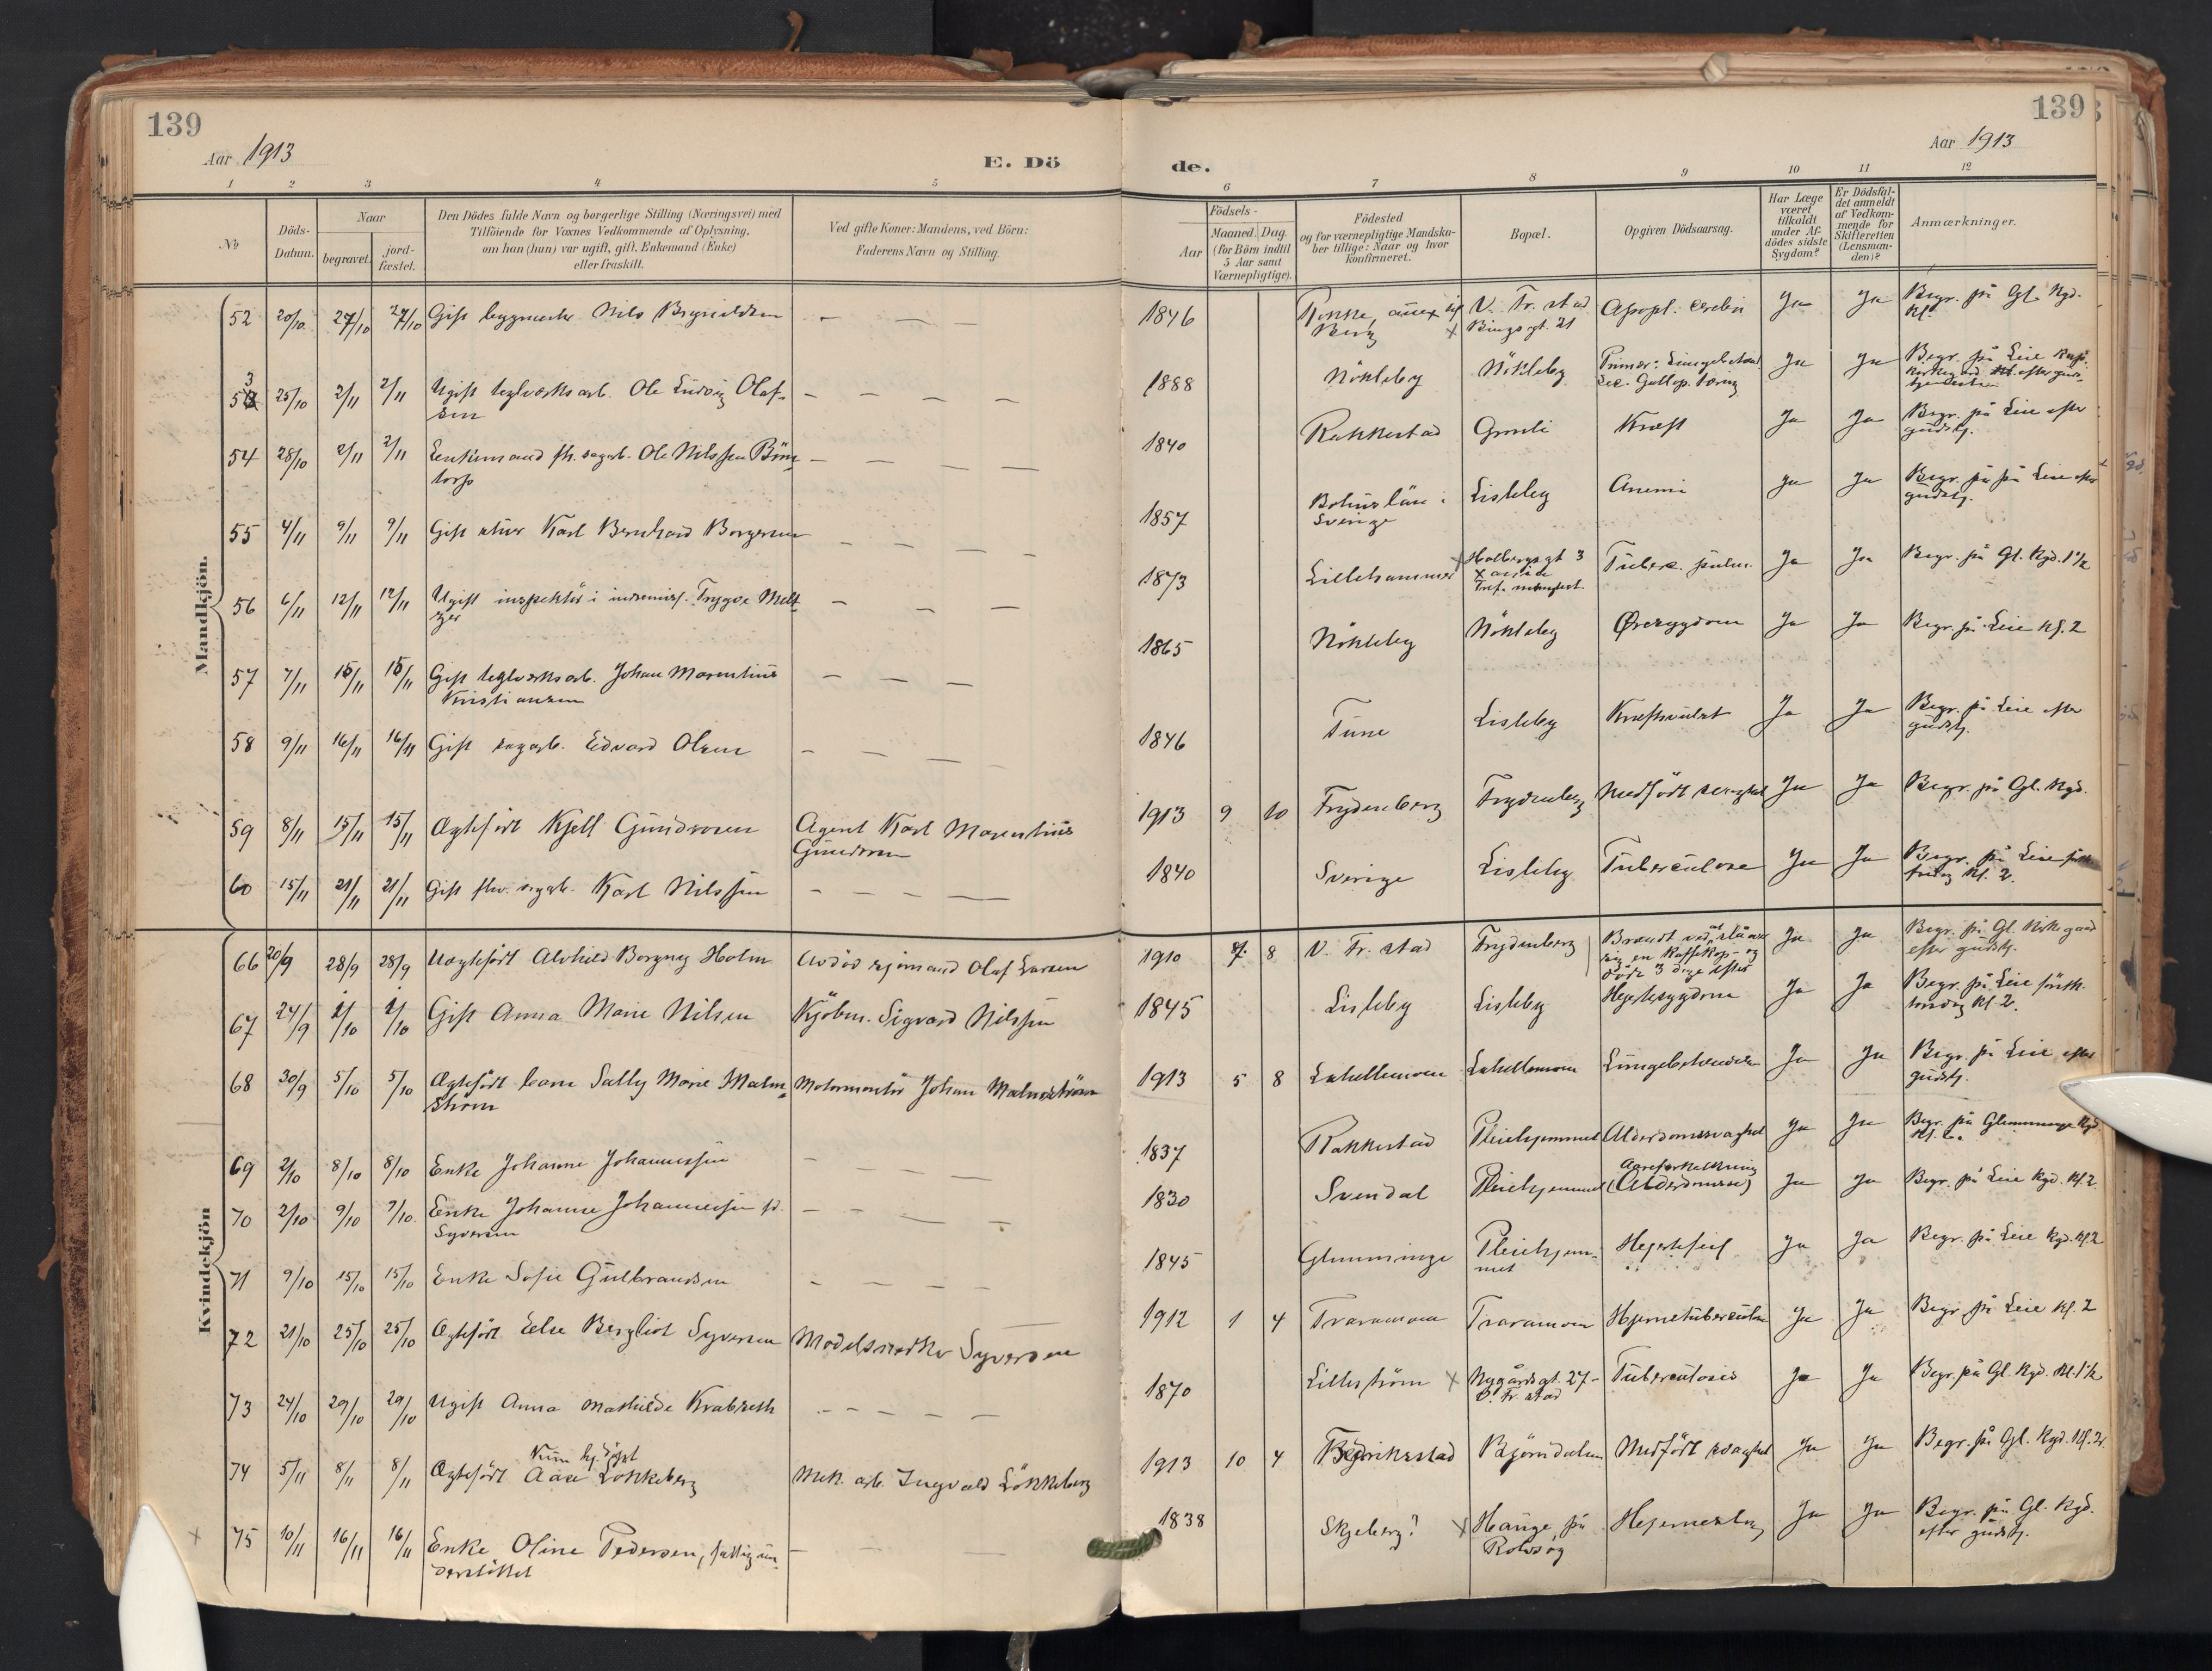 139
139
Aar 1913
Aar 1913
E. Dö
de.
1 2 3 4 5
6 7 8 9 10 11 12
No
Döds-
Datum.
Naar
begravet.
jord-
fæstet.
Den Dödes fulde Navn og borgerlige Stilling (Næringsvei) med
Tilföiende for Voxnes Vedkommende af Oplysning,
om han (hun) var ugift, gift, Enkemand (Enke)
eller fraskilt.
Ved gifte Koner: Mandens, ved Börn:
Faderens Navn og Stilling.
Födsels-
Aar
Maaned. Dag.
(for Börn indtil
5 Aar samt
Værnepligtige).
Födested
og for værnepligtige Mandska-
ber tillige: Naar og hvor
konfirmeret.
Bopæl.
Opgiven Dödsaarsag.
Har Læge
været
tilkaldt
under Af-
dödes sidste
Sygdom?
Er Dödsfal-
det anmeldt
af Vedkom-
mende for
Skifteretten
(Lensman-
den)?
Anmærkninger.
Mandkjön.
52 20/10 27/10 27/10 Gift Nils — — — 1846 V. Fr.stad Apopl. cerebri Ja Ja Begr. på Gl. Kgd.
Berg x Bings gt. 21 Kl.
53 25/10 2/11 2/11 Ugift teglverksarb. Ole Ludvig Olaf- — — — — 1888 Nökleby Nökleby Ja Ja Begr. på Leie
sen sec. Gallop. tæring
54 28/10 2/11 2/11 Enkemand fh. sagarb. Ole Nilssen — — — — 1840 Rakkestad Kræft Ja Ja Begr. på Leie efter
torp gudstj.
55 4/11 9/11 9/11 Gift Karl Bernhard Borgersen — — — — 1857 Bohuslän i Lisleby Anemi Ja Ja Begr. på på Leie efter
Sverige gudstj.
56 6/11 12/11 12/11 Ugift inspektör i indremisj. Trygve Melt- — — — 1873 Lillehammer x Holbergs gt 3 Tuberc. pulm. Ja Ja Begr. på Gl. Kgd. 1 1/2
zer
57 7/11 15/11 15/11 Gift teglverksarb. Johan Marentius — — — 1865 Nökleby Nökleby Øresygdom Ja Ja Begr. på Leie Kl. 2
Kristiansen
58 9/11 16/11 16/11 Gift sagarb. Edvard Olsen — — — — 1846 Tune Lisleby Kræftsvulst Ja Ja Begr. på Leie efter
gudstj.
59 8/11 15/11 15/11 Ægtefödt Kjell Gundersen Agent Karl Marentius 1913 9 10 Frydenberg Frydenberg Medfödt svaghed Ja Ja Begr. på Gl. Kgd.
Gundersen
60 15/11 21/11 21/11 Gift fhv. sagarb. Karl Nilssen — — — — 1840 Sverige Lisleby Tuberculose Ja Ja Begr. på Leie
Kl. 2.
Kvindekjön
66 20/9 28/9 28/9 Uægtefödt Alvhild Borgny Holm Avdöd sjömand Olaf Larsen 1910 8 V. Fr.stad Frydenberg Brændt ved at slå over Ja Ja Begr. på Gl. Kirkegaard
sig en Kaffekop og efter gudstj.
döde 3 dage efter
67 24/9 2/10 2/10 Gift Anna Marie Nilsen Kjöbm. Sigvard Nilssen 1845 Lisleby Lisleby Hjertesygdom Ja Ja Begr. på Leie
Kl. 2.
68 30/9 5/10 5/10 Ægtefödt barn Sally Marie Malm- Motormontör Johan Malmström 1913 5 8 Lahellemoen Lahellemoen Lungebetændelse Ja Ja Begr. på Leie efter
ström gudstj.
69 2/10 8/10 8/10 Enke Johanne Johannessen — — — 1837 Rakkestad Pleiehjemmet Alderdomssvaghed Ja Ja Begr. på Glemminge Kgd
Kl. 2.
70 2/10 9/10 9/10 Enke Johanne Johannessen fd. — — — — 1830 Svendal Pleiehjemmet Aareforkalkning Ja Ja Begr. på Leie Kgd. Kl. 2.
Syversen
71 9/10 15/10 15/10 Enke Sofie Gulbrandsen — — — — 1845 Glemminge Pleiehjem- Hjertefeil Ja Ja Begr. på Leie Kgd. Kl. 2
met
72 21/10 25/10 25/10 Ægtefödt Else Bergliot Syversen Modelsnedker Syversen 1912 1 4 Traramoen Traramoen Hjernetuberculose Ja Ja Begr på Leie Kl. 2
73 24/10 29/10 29/10 Ugift Anna Mathilde Krabseth — — — — — 1870 Lilleström x Nygårdsgt. 27 - Tuberculosis Ja Ja Begr. på Gl. Kgd. Kl. 1 1/2
V. Fr.stad
Kun hj.döpt
74 5/11 8/11 8/11 Ægtefödt Aase Lökkeberg Mek. arb. Ingvald Lökkeberg 1913 10 4 Fredrikstad Björndalen Medfödt svaghed Ja Ja Begr. på Gl. Kgd. Kl. 2.
x 75 10/11 16/11 16/11 Enke Oline Pedersen, fattigun- — — — 1838 Skjeberg? x Hauge på Ja Ja Begr. på Gl. Kgd.
derstöttet Rolvsøy efter gudstj.